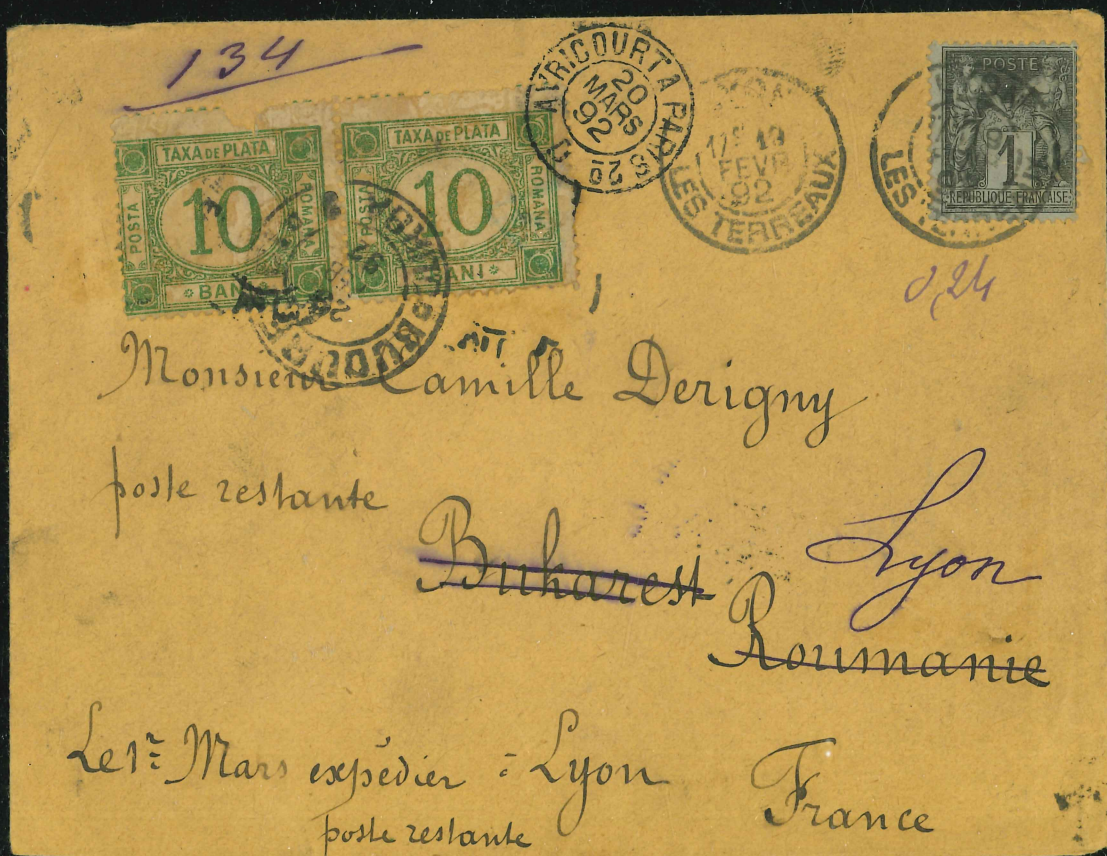 134
TAXA DE PLATA
POSTA
10
ROMANA
BANI
TAXA DE PLATA
10
ROMANA
BANI
AVRICOURT A PARIS
20
MARS
92
19
FEVR
92
LES TERREAUX
POSTE
1
REPUBLIQUE FRANÇAISE
LES
0,24
BUCUR
Monsieur Camille Derigny
poste restante
Bukarest
Lyon
Roumanie
Le 1er Mars expédier à Lyon
poste restante
France